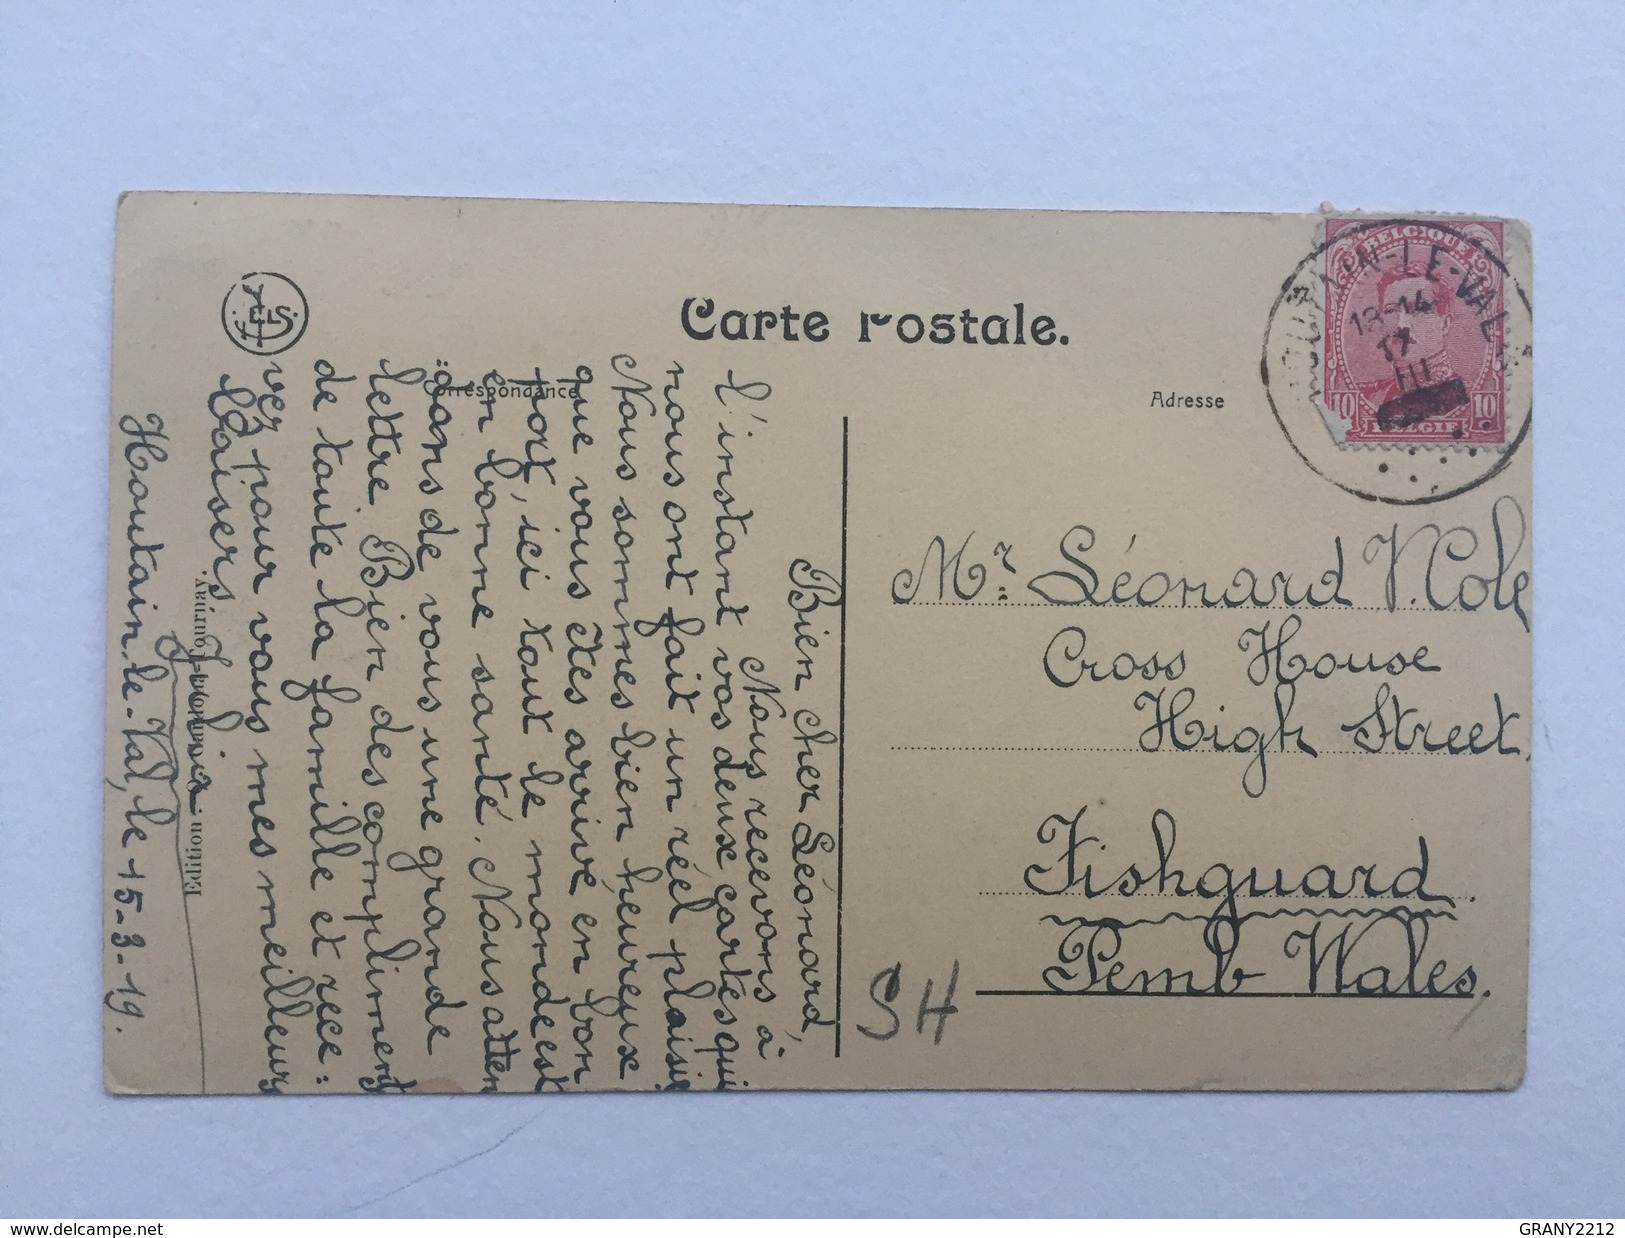 Carte Postale.
Correspondance
Adresse
BELGIQUE
10 10
BELGIE
-LE-VAL
13-14
17
III
Mr. Léonard V. Cole
Cross House
High Street,
Fishguard
Pemb Wales,
SH
Bien cher Léonard,
Nous recevons à
l'instant vos deux cartes qui
nous ont fait un réel plaisir
Nous sommes bien heureux
que vous êtes arrivé en bon
port, ici tout le monde est
en bonne santé. Nous atten
:dons de vous une grande
lettre Bien des compliments
de toute la famille et rece:
vez pour vous mes meilleurs
baisers
Houtain-le-Val, le 15-3-19.
Edition
GRANY2212
delcampe.net